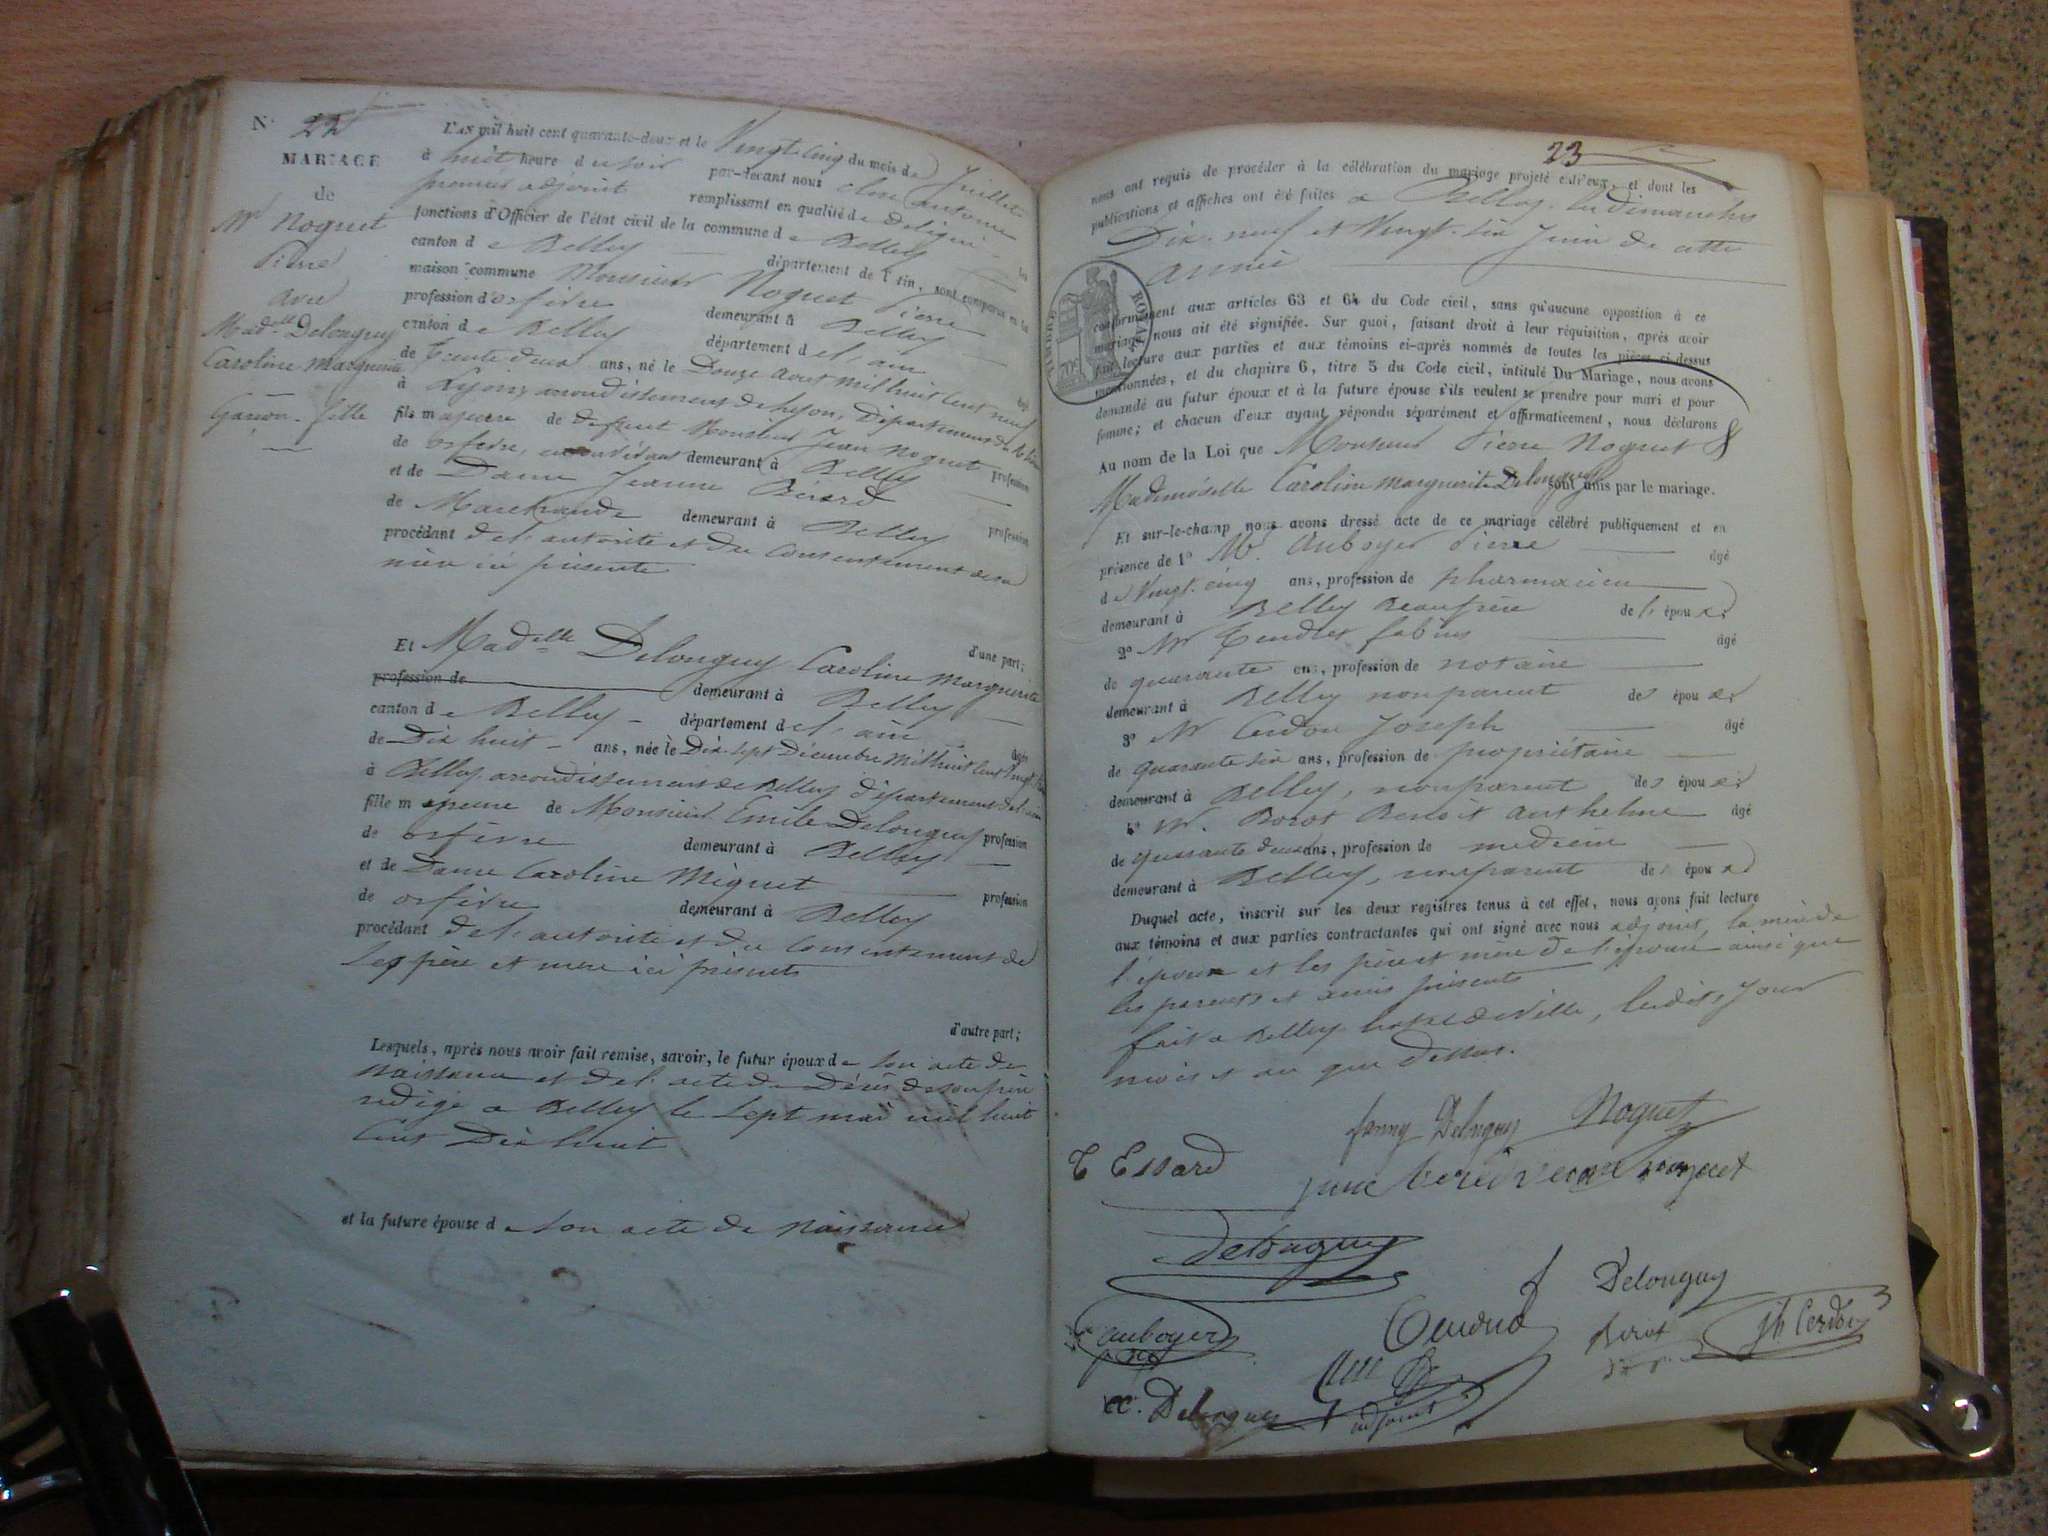 N° 22
MARIAGE
de
Mr Noguet
Pierre
avec
Madelle Delonguy
Caroline Marguerite
Garçon - fille
L'an mil huit cent quarante-deux et le Vingt cinq du mois de Juillet
à huit heure du soir par-devant nous antoine
premier adjoint remplissant en qualité de
fonctions d'Officier de l'état civil de la commune de Belley
canton de Belley département de l'Ain, sont comparus en la
maison commune Monsieur Noguet Pierre
profession d'orfèvre demeurant à Belley
canton de Belley département de l'ain
de Trente deux ans, né le Douze aout mil huit cent neuf
à Lyon, arrondissement de Lyon, Département du Rhône
fils majeur de defunt Monsieur Jean Noguet profession
de orfèvre, demeurant à Belley
et de Dame Jeanne Bérard profession
de Marchande demeurant à Belley
procédant de l'autorité et du consentement de sa
mère ici présente
d'une part;
Et Madelle Delonguy Caroline Marguerite
profession de demeurant à Belley
canton de Belley - département de l'ain âgée
de Dix huit - ans, née le Dix-sept Décembre mil huit cent vingt trois
à Belley arrondissement de Belley département de l'ain
fille mineure de Monsieur Emile Delonguy profession
de orfèvre demeurant à Belley
et de Dame Caroline Miguet profession
de orfèvre demeurant à Belley
procédant de l'autorité et du consentement de
ses père et mère ici présents
d'autre part;
Lesquels, après nous avoir fait remise, savoir, le futur époux de son acte de
naissance et de l'acte de Décès de son père
redigé a Belley le sept mai mil huit
cent Dix huit
et la future épouse de son acte de naissance
23
nous ont requis de procéder à la célébration du mariage projeté entr'eux, et dont les
publications et affiches ont été faites a Belley, les dimanches
Dix-neuf et Vingt-six Juin de cette
année
TIMBRE ROYAL
70c
conformément aux articles 63 et 64 du Code civil, sans qu'aucune opposition à ce
mariage nous ait été signifiée. Sur quoi, faisant droit à leur réquisition, après avoir
fait lecture aux parties et aux témoins ci-après nommés de toutes les pièces ci-dessus
mentionnées, et du chapitre 6, titre 5 du Code civil, intitulé Du Mariage, nous avons
demandé au futur époux et à la future épouse s'ils veulent se prendre pour mari et pour
femme; et chacun d'eux ayant répondu séparément et affirmativement, nous déclarons
Au nom de la Loi que Monsieur Pierre Noguet &
Mademoiselle Caroline Marguerite Delonguy sont unis par le mariage.
Et sur-le-champ nous avons dressé acte de ce mariage célébré publiquement et en
présence de 1° Mr. Auboyer Pierre âgé
de Vingt-cinq ans, profession de pharmacien
demeurant à Belley Beaufrère de l'époux
2° Mr Tendret fabius âgé
de quarante ans, profession de notaire
demeurant à Belley non parent des époux
3° Mr Cerdon Joseph âgé
de quarante six ans, profession de propriétaire
demeurant à Belley, non parent des époux
4° Mr. Borot Benoit Anthelme âgé
de quarante deux ans, profession de medecin
demeurant à Belley, non parent des époux
Duquel acte, inscrit sur les deux registres tenus à cet effet, nous avons fait lecture
aux témoins et aux parties contractantes qui ont signé avec nous adjoint, la mère de
l'époux et les père et mère de l'épouse ainsi que
les parents et amis présents
fait a Belley hotel de Ville, lesdits jour
mois et an que dessus.
fanny Delonguy Noguet
C Essard
Delonguy
Delonguy
auboyer
Borot
Jh Cerdon
Delonguy
adjoint